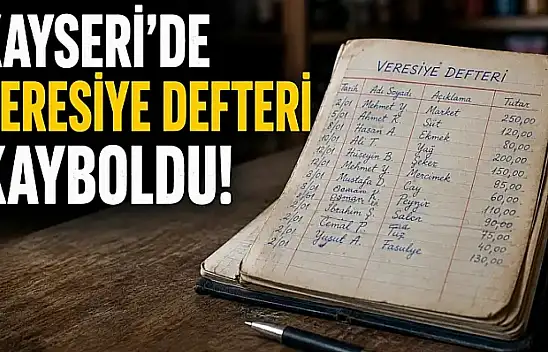 KAYSERİ'DE
VERESİYE DEFTERİ
KAYBOLDU!
VERESİYE DEFTERİ
Tarih Adı Soyadı Açıklama Tutar
2/01 Mehmet Y. Market 250,00
5/01 Ahmet K. Süt 120,00
8/01 Hasan A. Ekmek 80,00
10/01 Ali T. Yağ 200,00
12/01 Hüseyin B. Şeker 150,00
12/01 Mehmet Y. Mercimek 85,00
Mustafa D. Çay 60,00
Osman K. Peynir 110,00
İbrahim Ş. 90,00
Cemal P. Tuz 75,00
2/01 Yusuf A. Fasulye 40,00
130,00